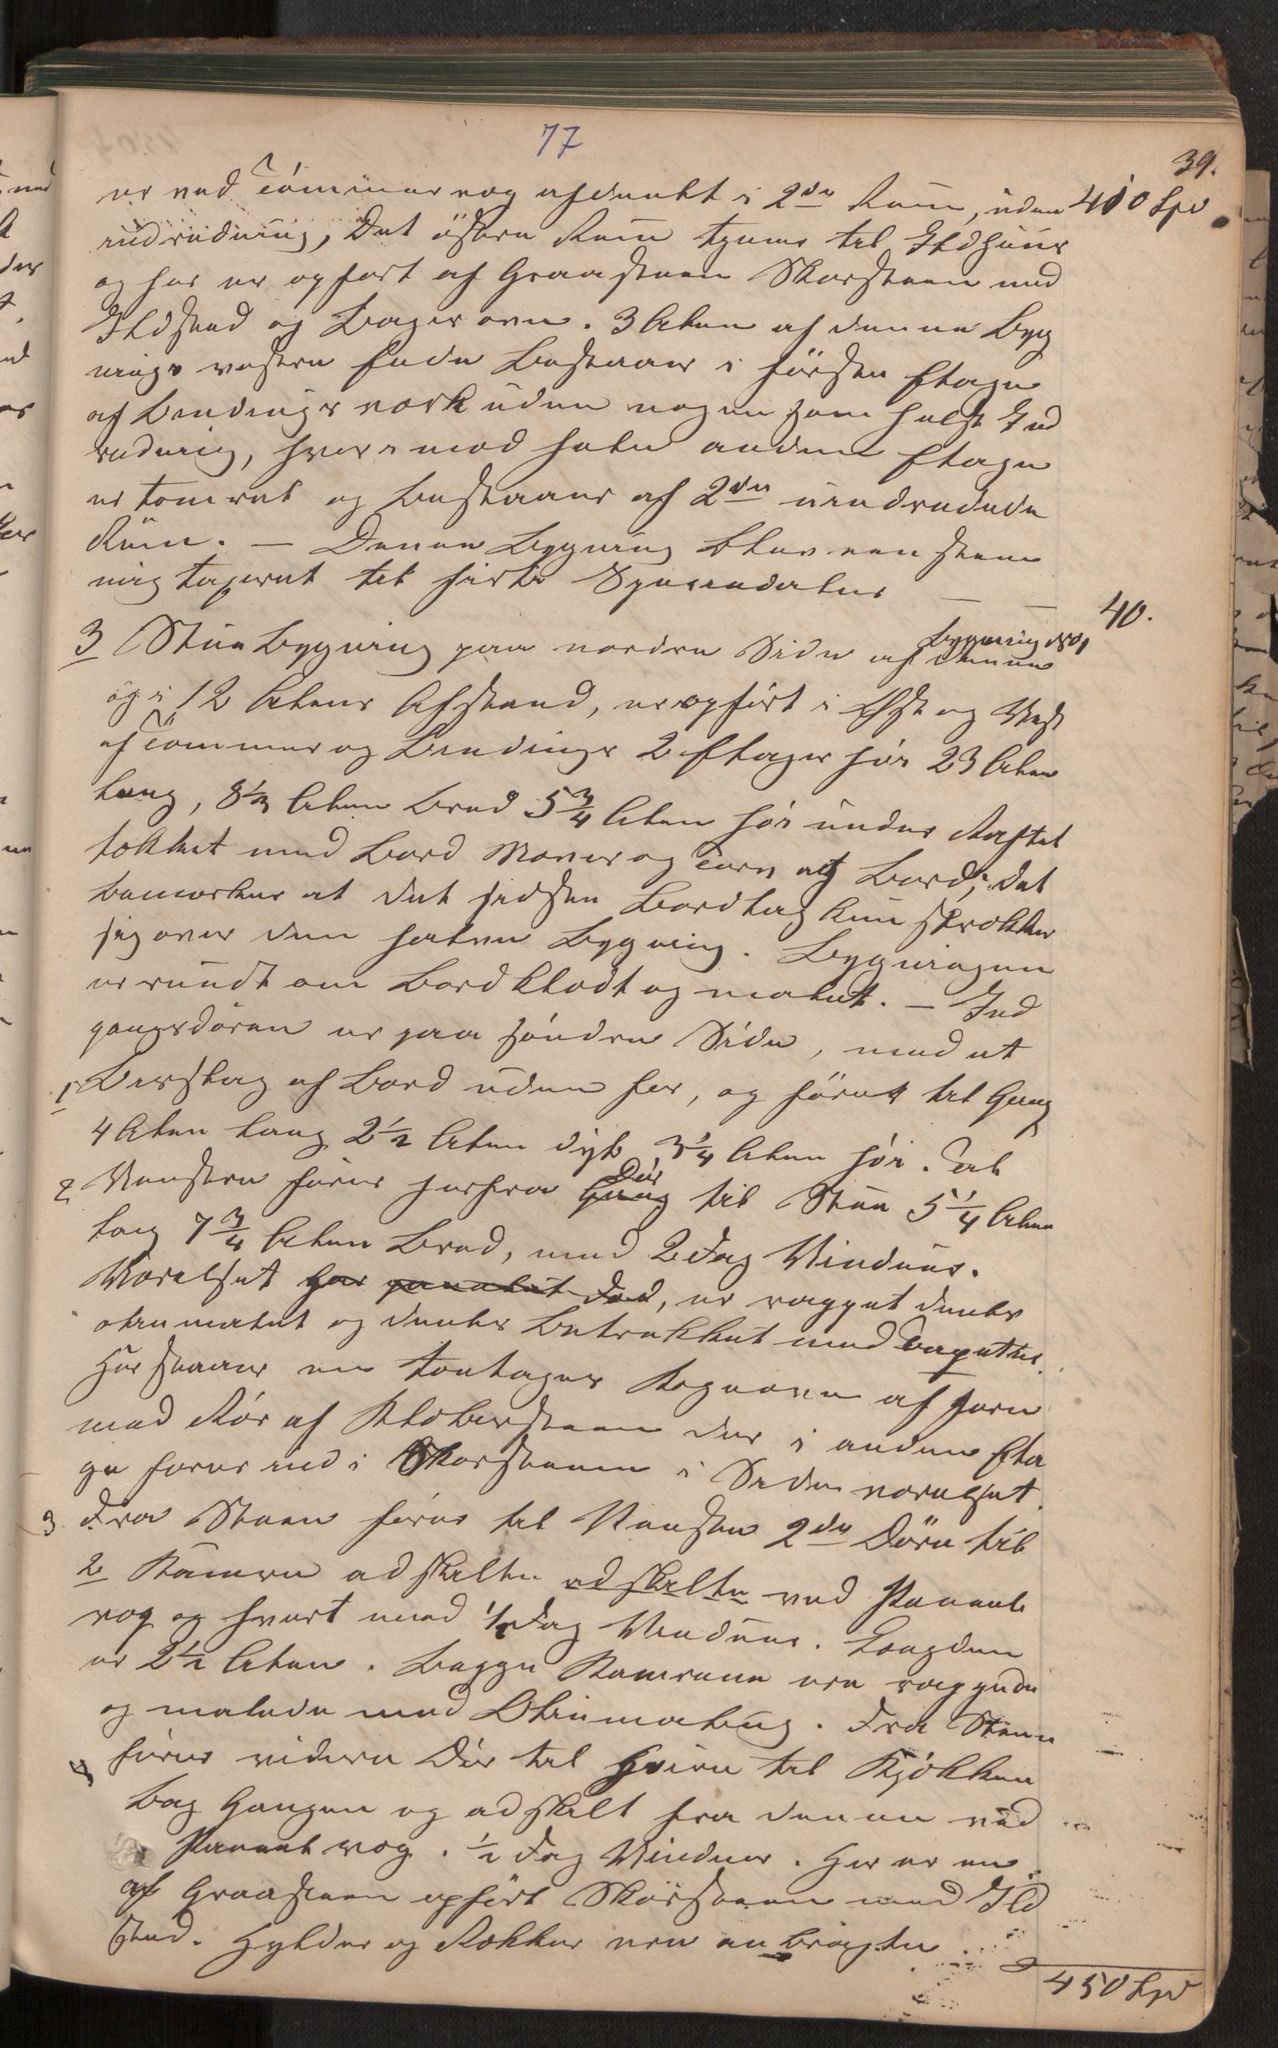 77
39.
er ved Tömmervæg afdeelt i 2de Rum, uden 410 Spd
indredning, Det östere Rum tjener til Ildhuus
og her er opført af Graasteen Skorsteen med
Ildsted og Bagerovn. 3 Alen af denne Byg
nings vestre Ende bestaaer i første Etage
af Bindingsværk uden nogen som helst Ind
redning, hvorimod hele anden Etage
er tømret og bestaaer af 2de uindredede
Rum. — Denne Bygning blev een stem
mig taxeret til
40.
3 Stue Bygning paa nordre Side af denne Bygning
og i 12 Alens Afstand, er opført i Øst og Vest
af Tömmer og Bindings 2 Etager høi 23 Alen
lang, 8½ Alen bred 5¾ Alen høi under Raftet
tækket med Bord Næver og Torv og Bord; det
bemærkes at det sidste Bordtag kun strækker
sig over den halve Bygning. Bygningen
er rundt om Bordklædt og malet. — Ind
gangsdören er paa söndre Side, med et
1 Bislag af Bord uden for, og förer til Gang
4 Alen lang 2½ Alen dyb 3¼ Alen høi. Til
2 Venstre föres herfra Gang Dör til Stue 5¼ Alen
lang 7¾ Alen bred, med 2 Fag Vinduer.
Værelset har panelet Fod, er rappet deels
oliemalet og deels betrækket med Tapetter.
Her staaer en toetages Kogeovn af Jern
med Rör af Klæbersteen der i anden Eta
ge fører ind i Skorsteenen i Sideværelset.
3 Fra Stuen föres til Venstre 2de Döre til
2 Kamre adskilte adskilte ved Paneel
væg og hvert med ½ Fag Vinduer. Længden
er 2½ Alen. Begge Kamrene ere rappede
og malede med Oliemaling. Fra Stuen
4 föres videre Dör til Höire til Kjökken
bag Gangen og adskilt fra denne ved
Paneelvæg. ½ Fag Vinduer. Her er en
af Graasteen opfört Skorsteen med Ild
sted. Hylder og Rækker ere anbragte
450 Spd